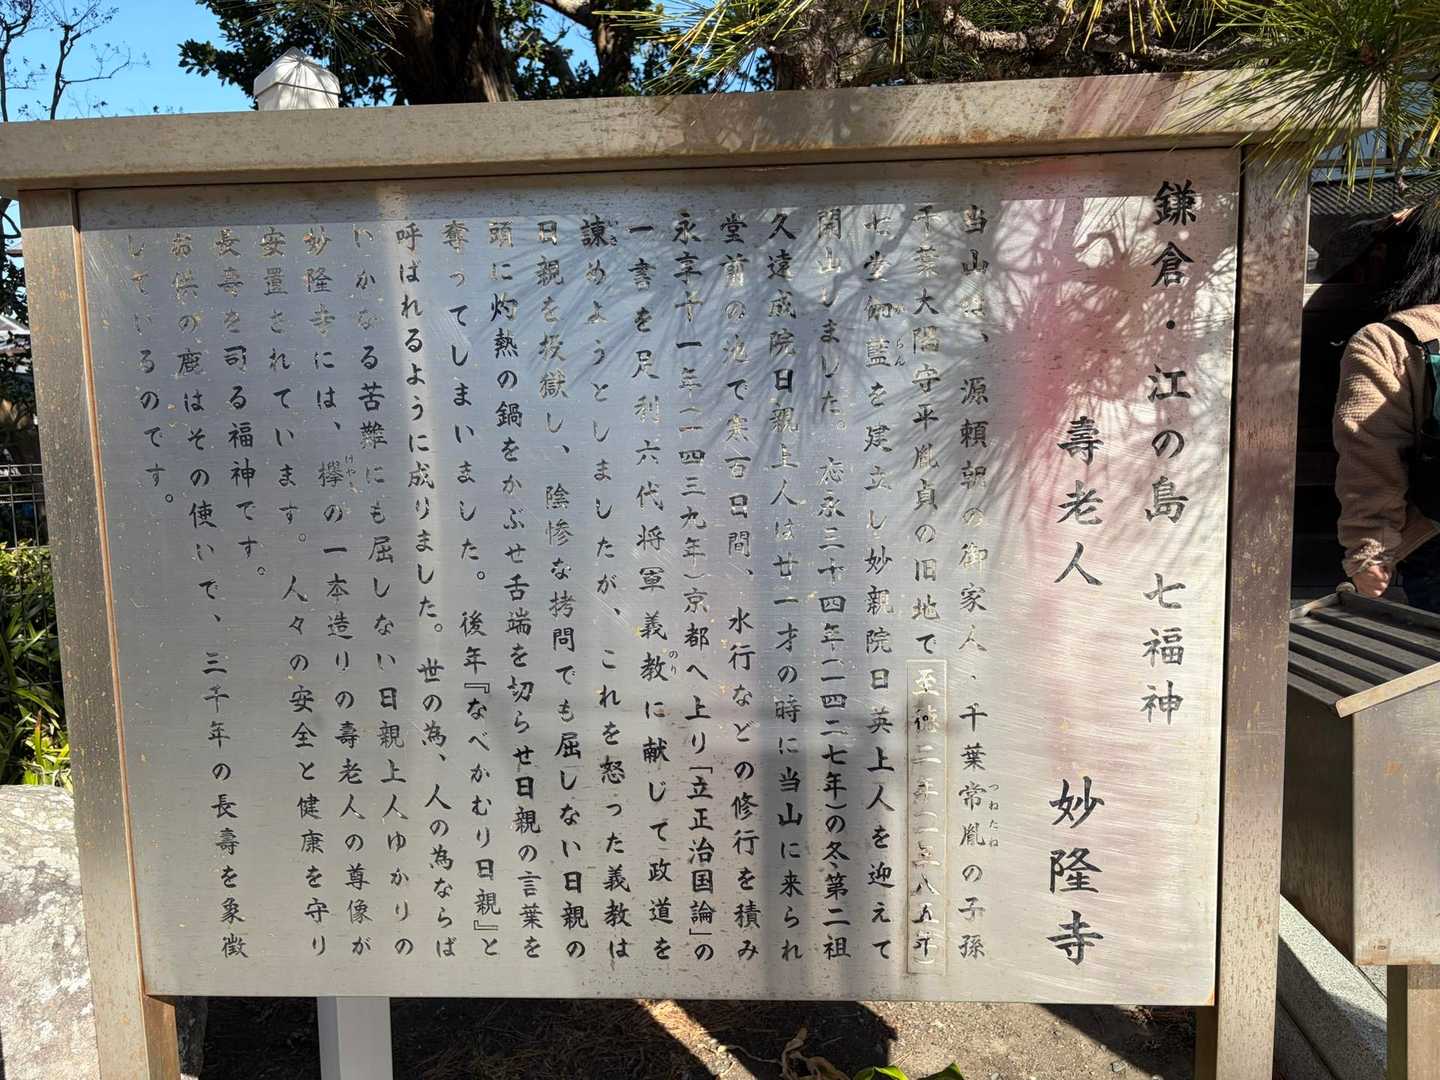 鎌倉・江の島 七福神
壽老人 妙隆寺
当山は、源頼朝の御家人、千葉常胤の子孫
つねたね
千葉大隅守平胤貞の旧地で至徳二年(一三八五年)
七堂伽藍を建立し妙親院日英上人を迎えて
がらん
開山しました。応永三十四年(一四二七年)の冬、第二祖
久遠成院日親上人は廿一才の時に当山に来られ
堂前の池で寒百日間、水行などの修行を積み
永享十一年(一四三九年)京都へ上り「立正治国論」の
一書を足利六代将軍義教に献じて政道を
のり
諫めようとしましたが、これを怒った義教は
日親を投獄し、陰惨な拷問でも屈しない日親の
頭に灼熱の鍋をかぶせ舌端を切らせ日親の言葉を
奪ってしまいました。後年『なべかむり日親』と
呼ばれるように成りました。世の為、人の為ならば
いかなる苦難にも屈しない日親上人ゆかりの
妙隆寺には、欅の一本造りの壽老人の尊像が
けやき
安置されています。人々の安全と健康を守り
長壽を司る福神です。
お供の鹿はその使いで、三千年の長壽を象徴
しているのです。